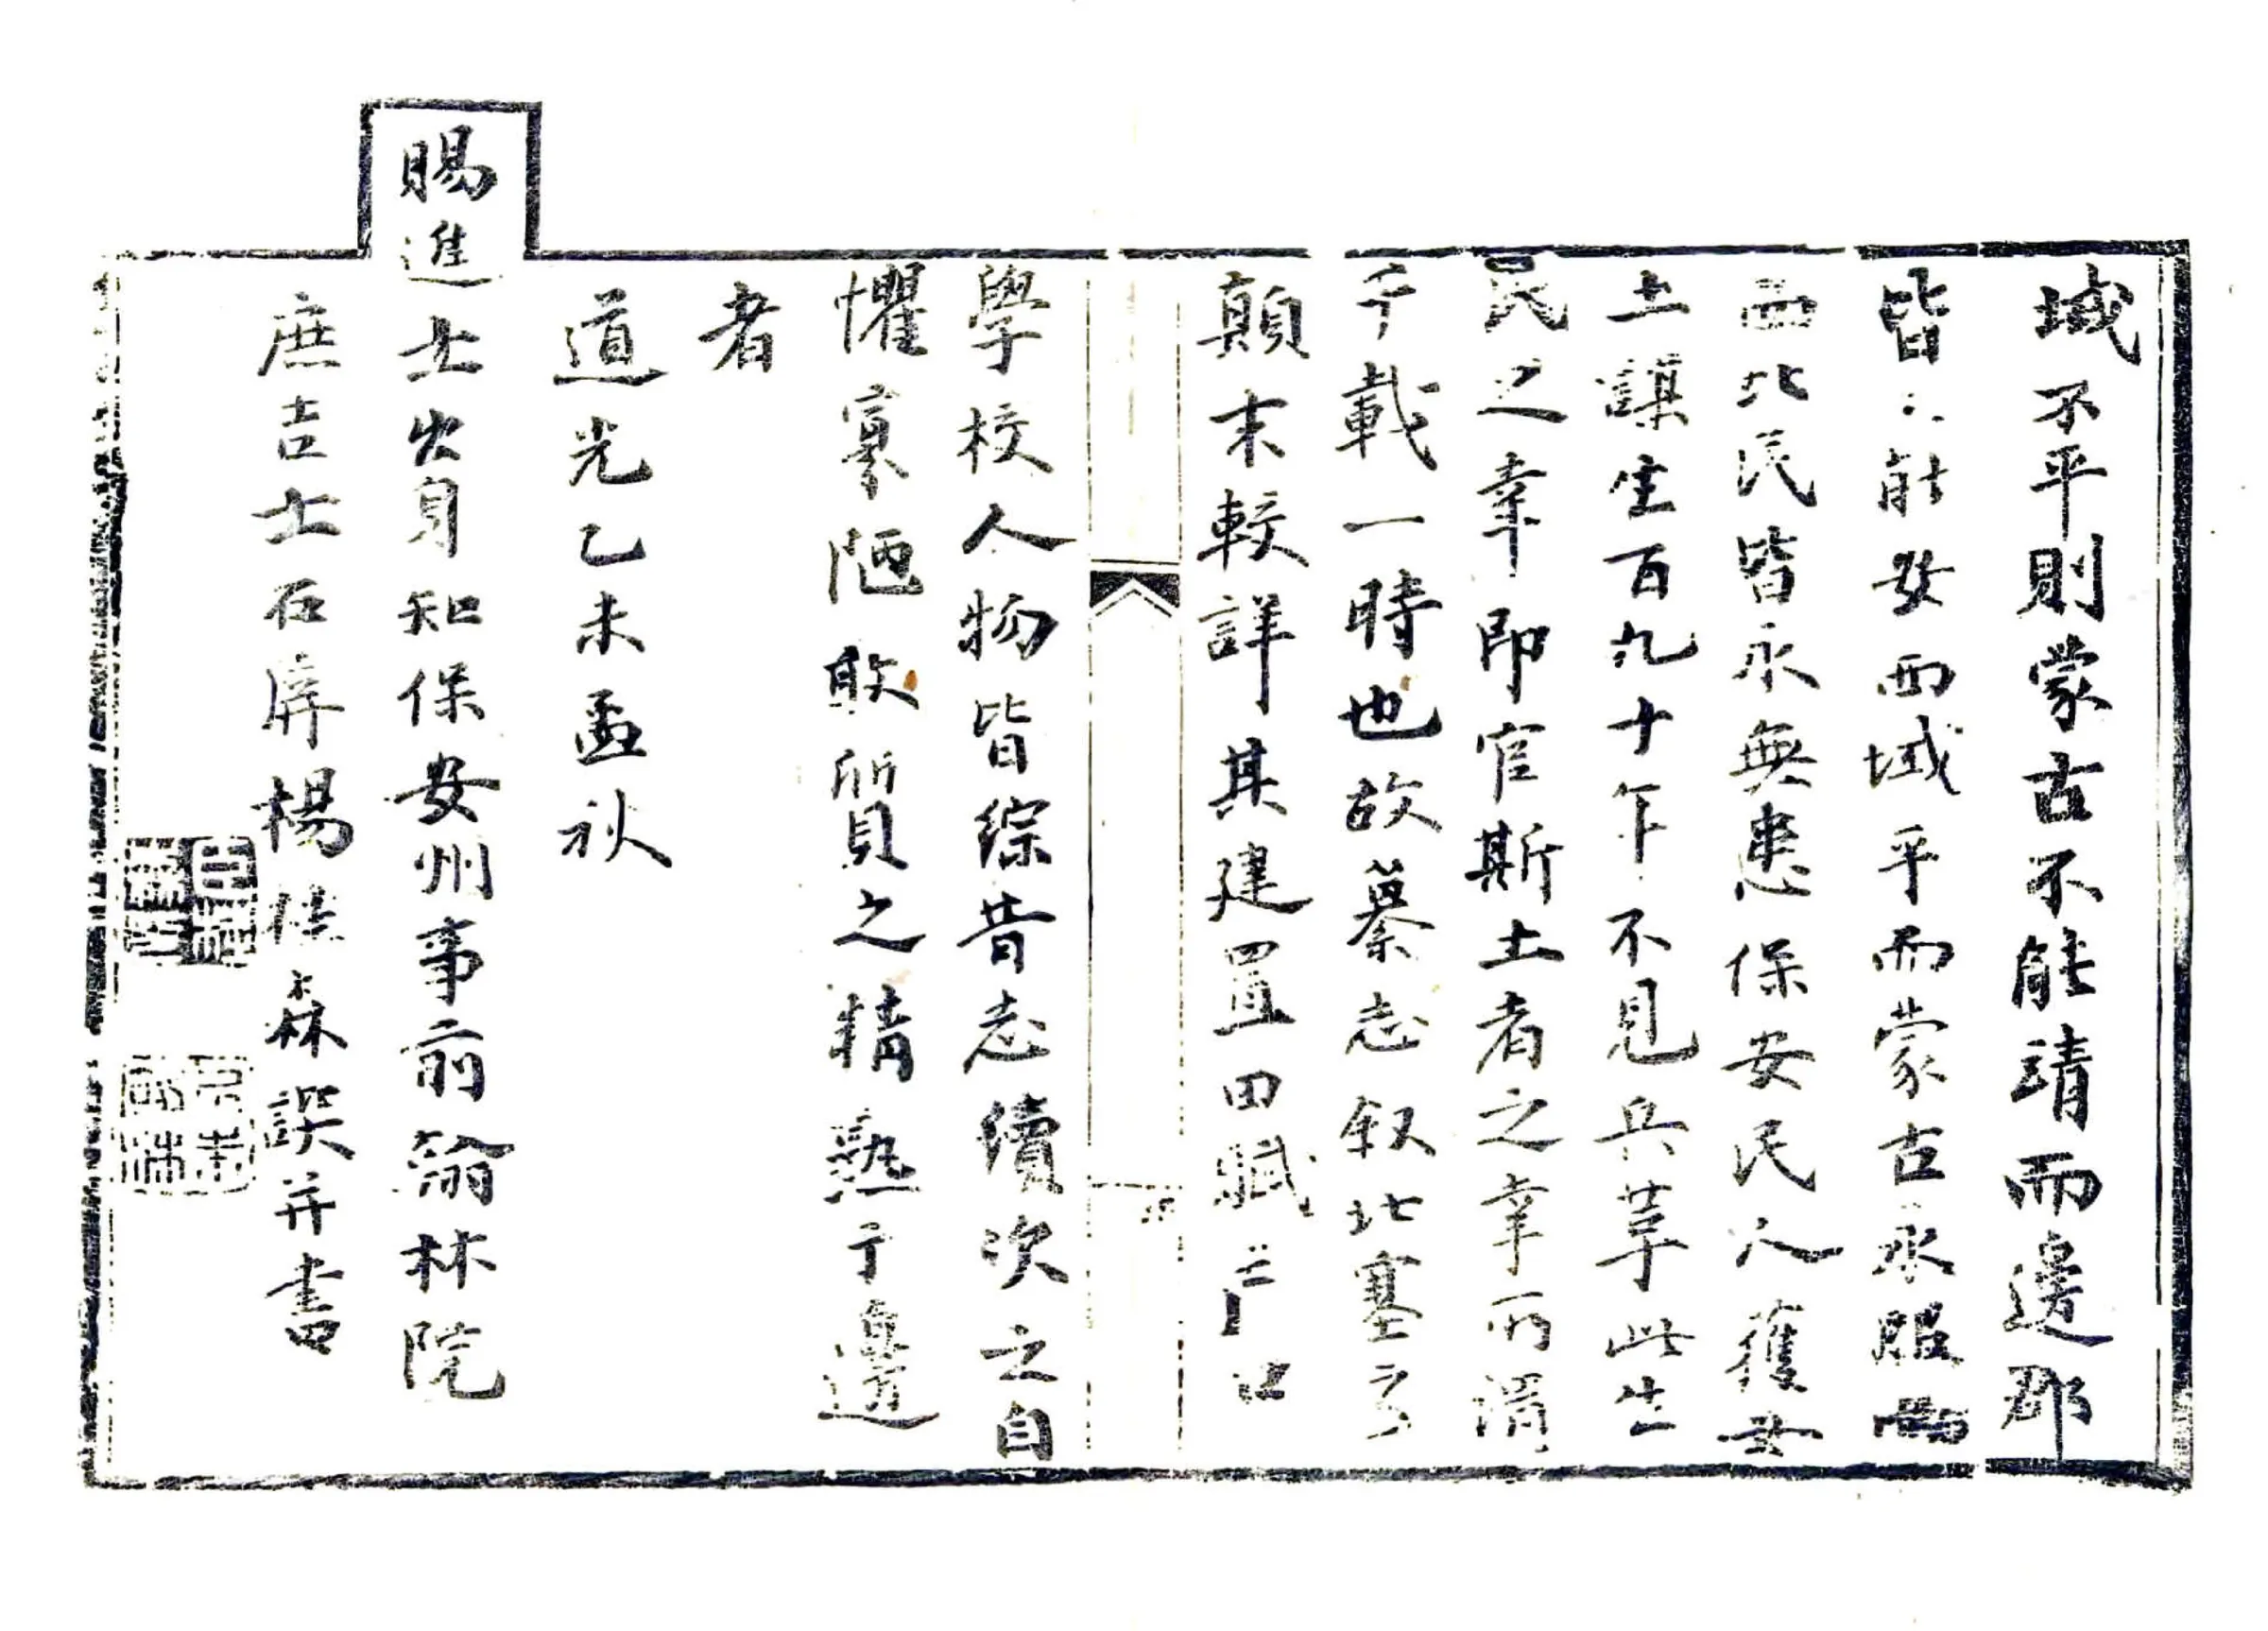 域不平則蒙古不能靖而邊郡
皆不能安西域平而蒙古永服
西北民皆永無患保安民人獲安
土謀生百九十年不見兵革此生
民之幸即官斯土者之幸所謂
千載一時也故纂志叙北塞之
顛末較詳其建置田賦戶口
學校人物皆綜昔志續次之自
懼寡陋敢質之精熟于邊
者
道光乙未孟秋
賜進士出身知保安州事前翰林院
庶吉士石屏楊桂森譔并書